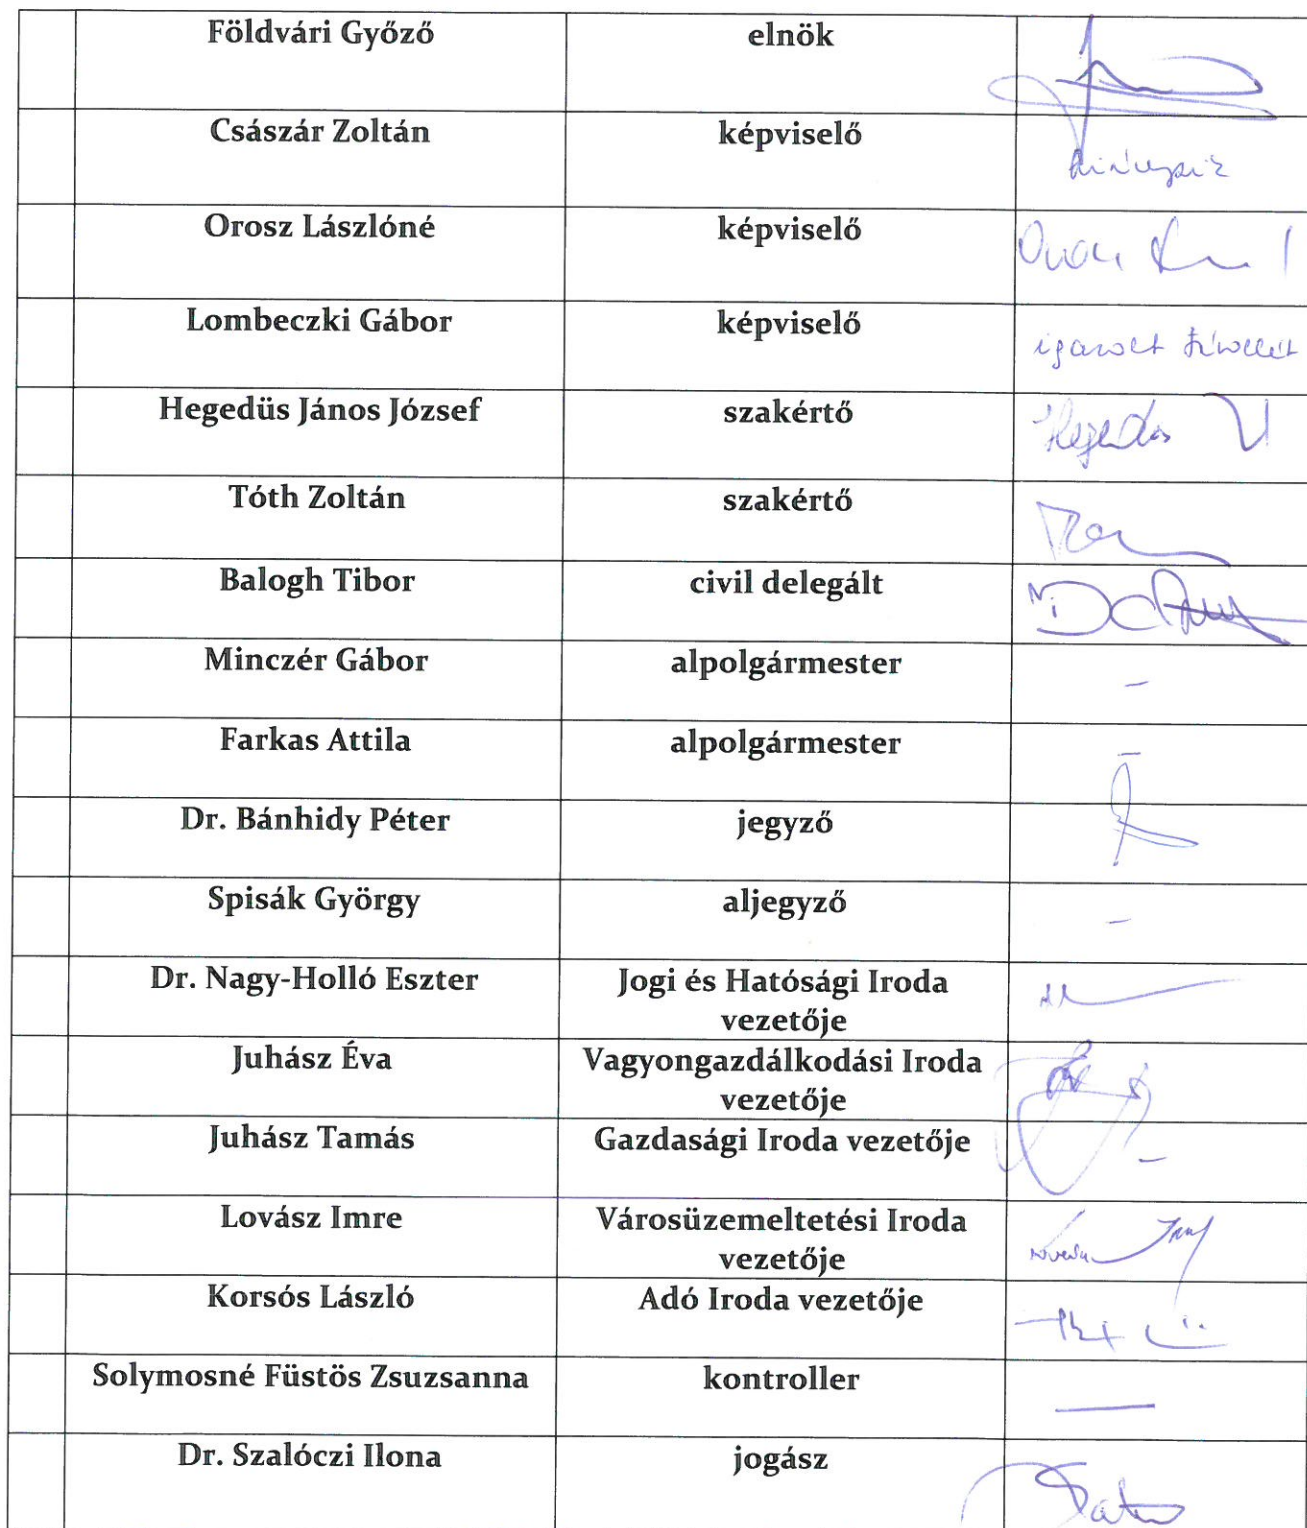 Földvári Győző elnök
Császár Zoltán képviselő
Orosz Lászlóné képviselő
Lombeczki Gábor képviselő igazolt távollét
Hegedüs János József szakértő Hegedüs
Tóth Zoltán szakértő
Balogh Tibor civil delegált
Minczér Gábor alpolgármester –
Farkas Attila alpolgármester –
Dr. Bánhidy Péter jegyző
Spisák György aljegyző –
Dr. Nagy-Holló Eszter Jogi és Hatósági Iroda
vezetője
Juhász Éva Vagyongazdálkodási Iroda
vezetője
Juhász Tamás Gazdasági Iroda vezetője –
Lovász Imre Városüzemeltetési Iroda
vezetője
Korsós László Adó Iroda vezetője
Solymosné Füstös Zsuzsanna kontroller —
Dr. Szalóczi Ilona jogász